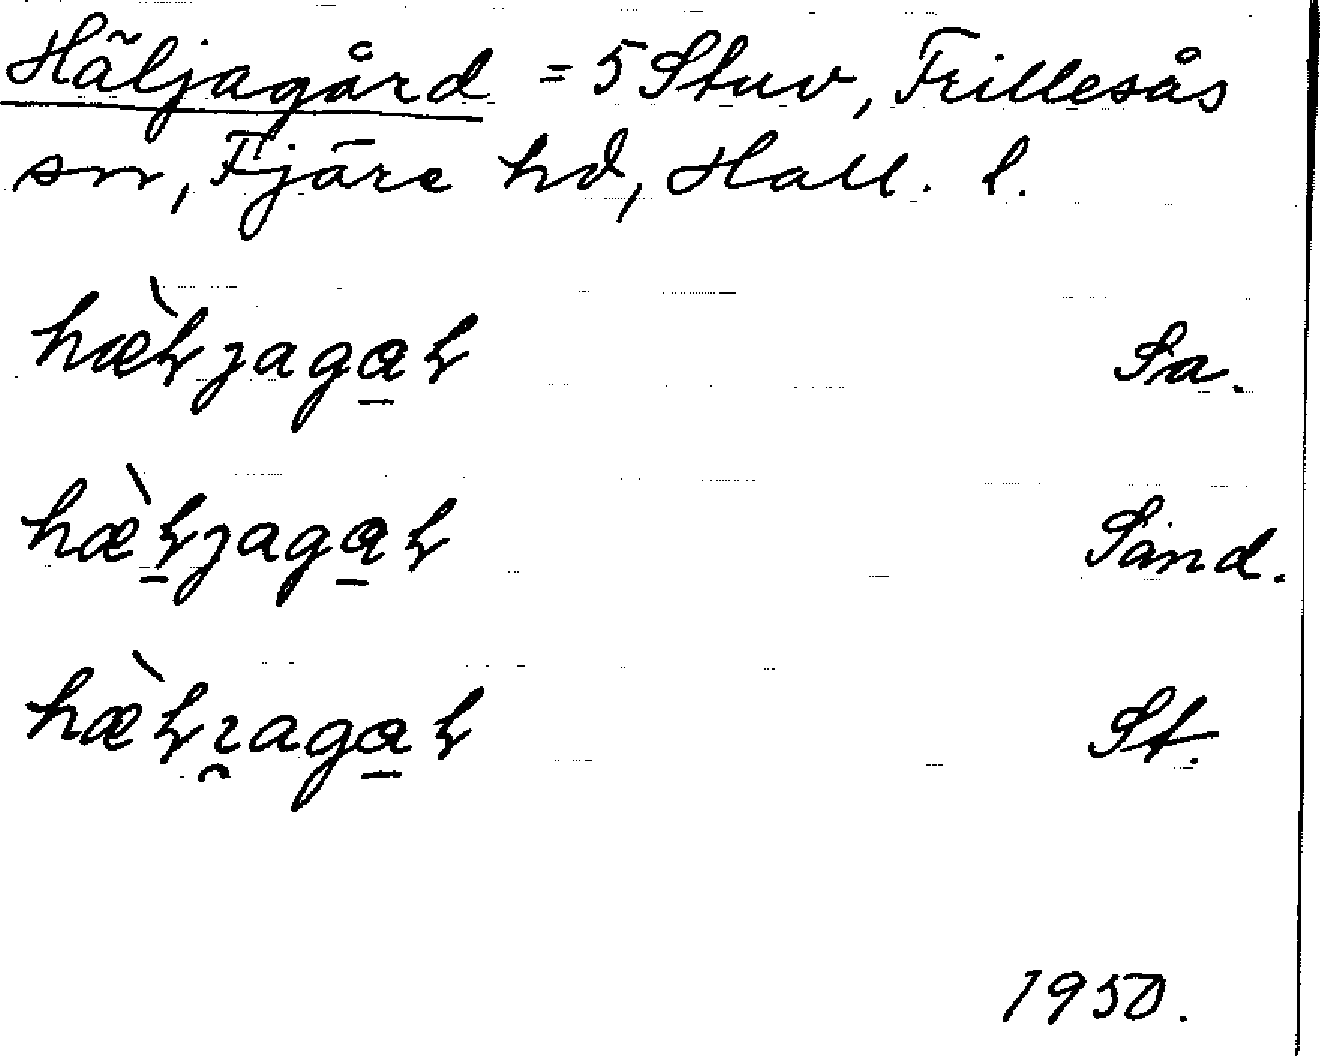 Häljagård = 5 Stuv, Frillesås
sn, Fjäre hd, Hall. l.
hæ̀ɽjaga̱ɽ Sa.
hæ̀ɽ̱jaga̱ɽ Sand.
hæ̀ɽı̯aga̱ɽ St.
1950.